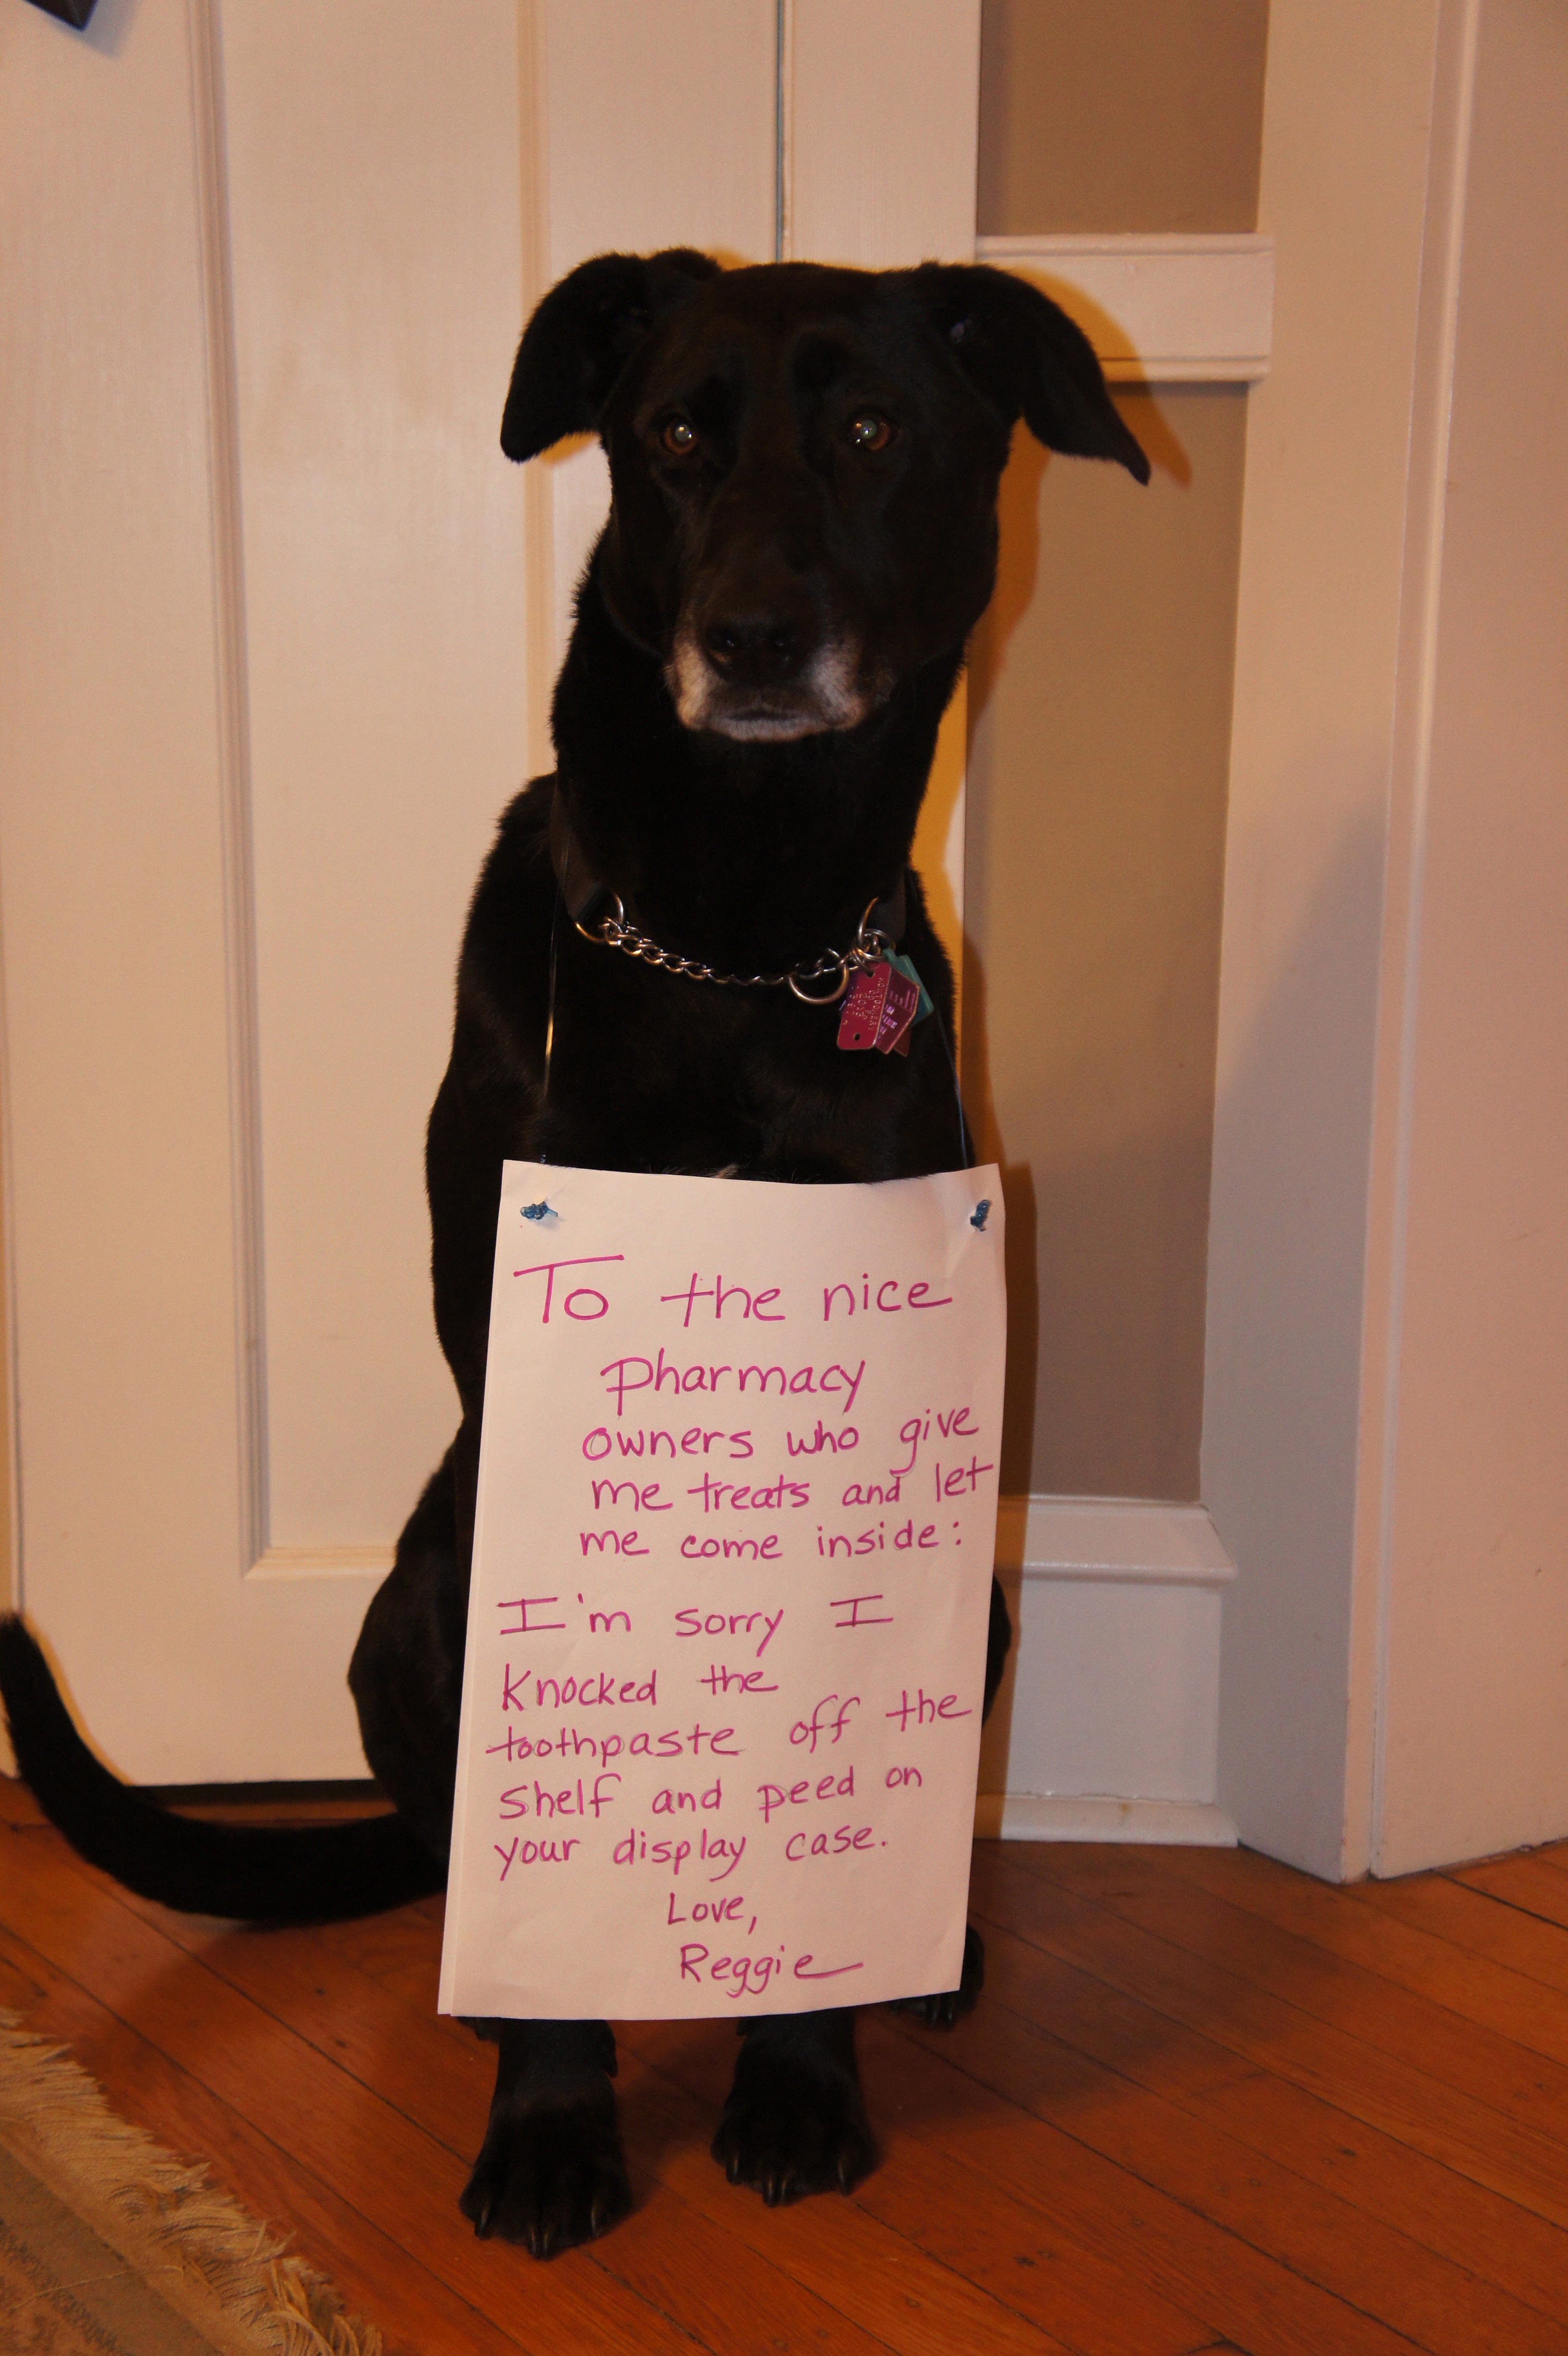 To the nice
Pharmacy
owners who give
me treats and let
me come inside:
I'm sorry I
knocked the
toothpaste off the
shelf and peed on
your display case.
Love,
Reggie